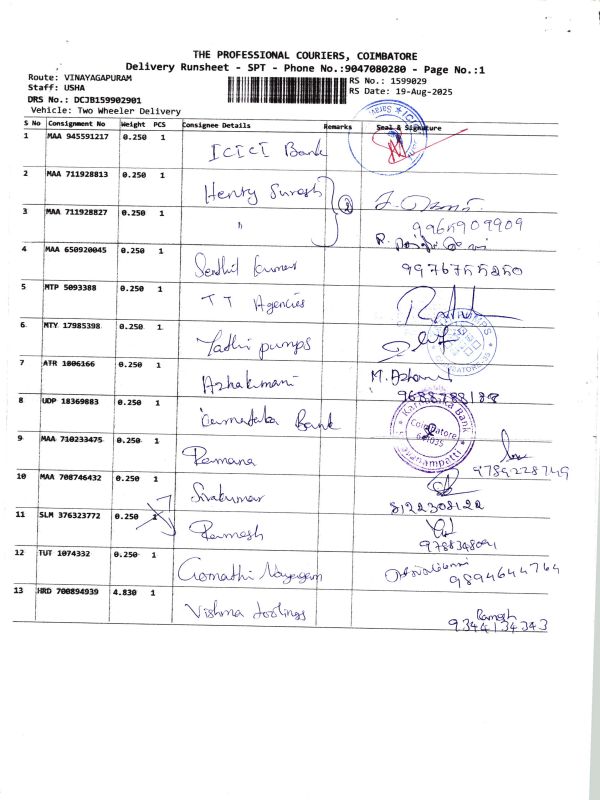 THE PROFESSIONAL COURIERS, COIMBATORE
Delivery Runsheet - SPT - Phone No.:9047080280 - Page No.:1
Route: VINAYAGAPURAM RS No.: 1599029
Staff: USHA RS Date: 19-Aug-2025
DRS No.: DCJB159902901
Vehicle: Two Wheeler Delivery
S No Consignment No Weight PCS Consignee Details Remarks Seal & Signature
1 MAA 945591217 0.250 1 ICICI Bank
2 MAA 711928813 0.250 1 Henry Suresh 2
3 MAA 711928827 0.250 1 " 9965909909
4 MAA 650920045 0.250 1 Senthil Kumar 9976755250
5 MTP 5093388 0.250 1 TT Agencies
6 MTY 17985398 0.250 1 Yadhi pumps
7 ATR 1006166 0.250 1 Azhakumani M. Azha
9688788188
8 UDP 18369883 0.250 1 Carnataka Bank Karnataka Bank Coimbatore 641035
9 MAA 710233475 0.250 1 Ramana 9789228749
10 MAA 708746432 0.250 1 Sivakumar 8122308122
11 SLM 376323772 0.250 1 Ramesh 9788348091
12 TUT 1074332 0.250 1 Gomathi Nayagam 9894644764
13 HRD 700894939 4.830 1 Vishma toolings Ramesh
9344134343